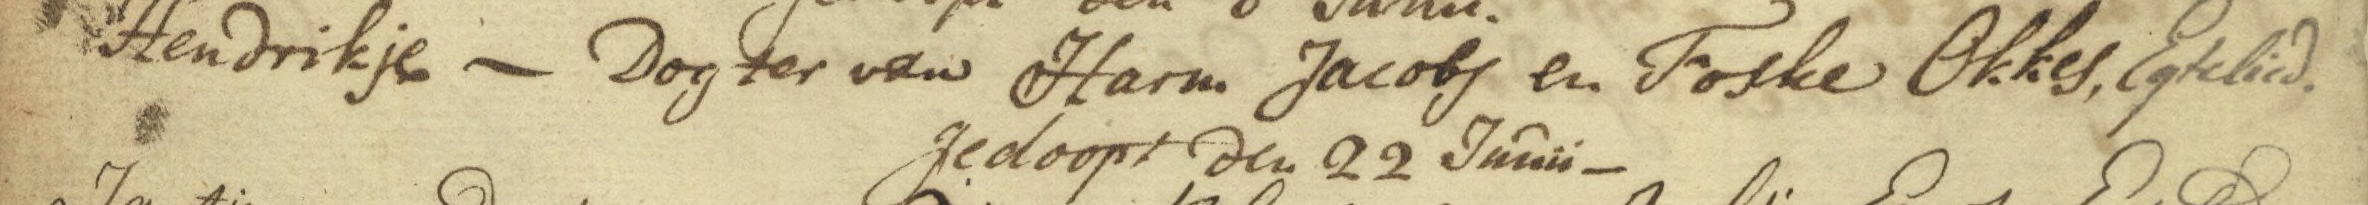 den 8 Junii.
Hendrikje — Dogter van Harm Jacobs en Foske Okkes, Egtelied.
gedoopt den 22 Junii —